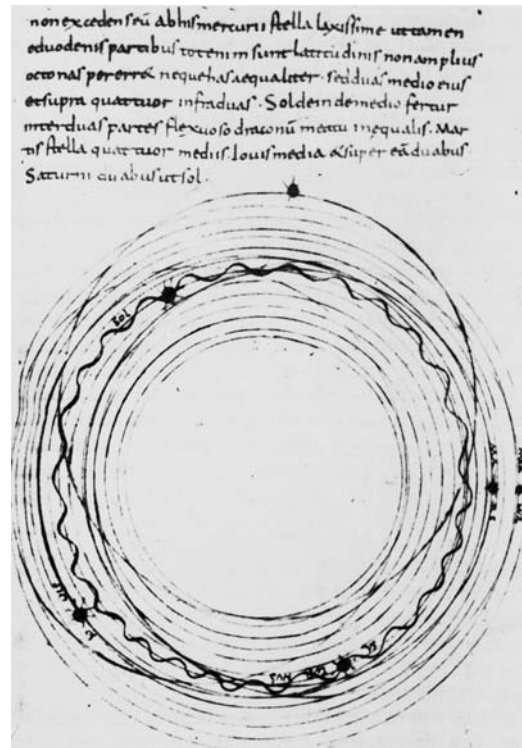 non excedens eū ab his mercurii stella laxissime ut tamen
e duodenis partibus tot enim sunt latitudinis non amplius
octonas pererr& neque has aequaliter · sed duas medio eius
et supra quattuor infra duas · Sol deinde medio fertur
inter duas partes flexuoso draconū meatu inequalis · Mar
tis stella quattuor mediis · Iouis media & super eā duabus
Saturni duabus ut sol ·
SOL